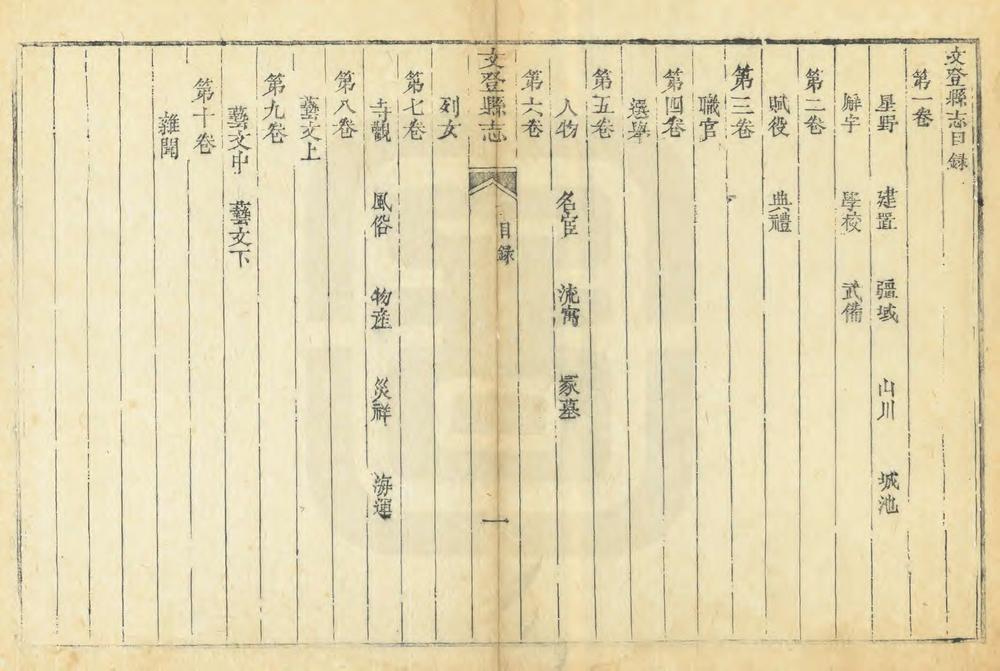 文登縣志目錄
第一卷
星野 建置 疆域 山川 城池
廨宇 學校 武備
第二卷
賦役 典禮
第三卷
職官
第四卷
選舉
第五卷
人物 名宦 流寓 冢墓
第六卷
文登縣志 目錄 一
列女
第七卷
寺觀 風俗 物產 災祥 海運
第八卷
藝文上
第九卷
藝文中 藝文下
第十卷
雜聞